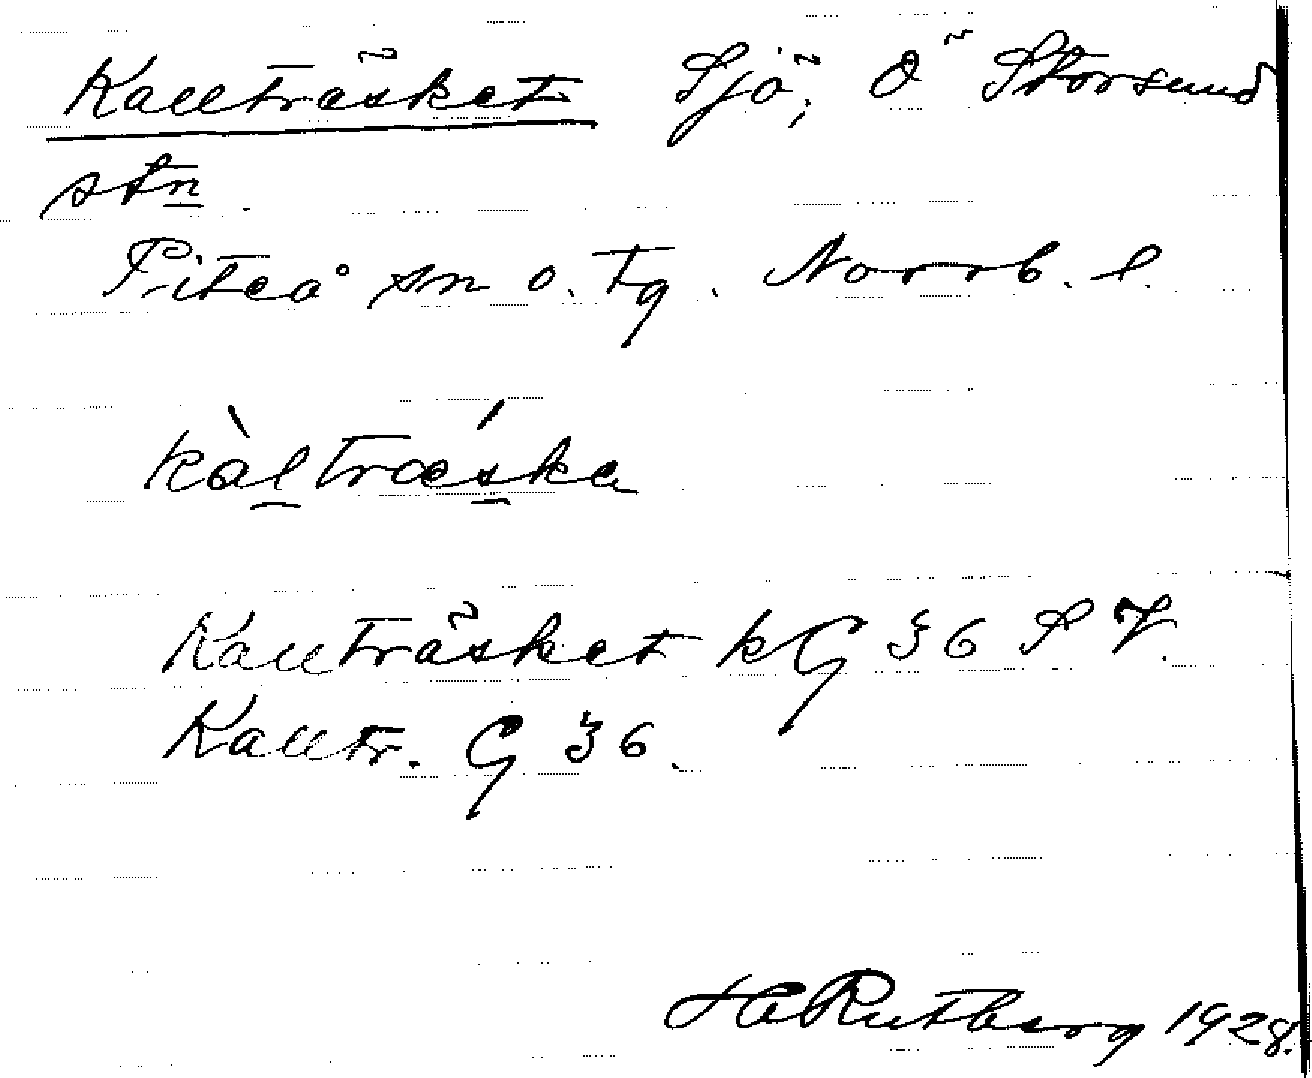 Kallträsket Sjö, Ö Storsund
stn.
Piteå sn o. tg. Norrb. l.
kàltrǽska
Kallträsket kG 36 S V.
Kalltr. G 36.
H Rutberg 1928.